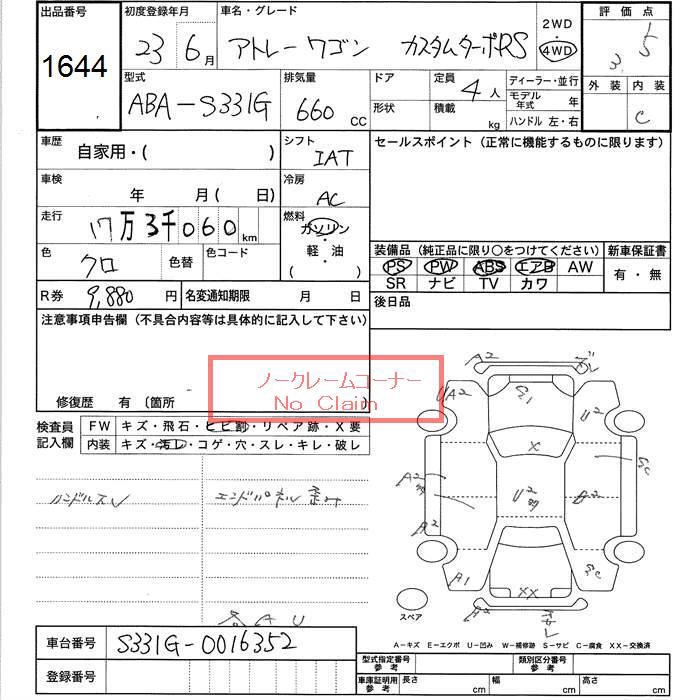 出品番号 1644
初度登録年月 23 6月
車名・グレード アトレーワゴン カスタムターボRS
2WD・4WD
評価点 3.5
外装 内装 C
型式 ABA-S331G
排気量 660 CC
ドア
形状
定員 4人
積載 kg
ディーラー・並行
モデル年式 年
ハンドル 左・右
車歴 自家用・( )
シフト IAT
セールスポイント (正常に機能するものに限ります)
車検 年 月( 日)
冷房 AC
走行 17万3千060km
燃料 ガソリン・軽・油 ( )
色 クロ 色替 色コード
装備品 (純正品に限り○をつけてください)
新車保証書 有・無
PS PW ABS エアB AW
SR ナビ TV カワ
R券 9,880円 名変通知期限 月 日
後日品
注意事項申告欄 (不具合内容等は具体的に記入して下さい)
ノークレームコーナー
No Claim
修復歴 有 〔箇所
検査員記入欄
FW キズ・飛石・ヒビ割・リペア跡・X要
内装 キズ・汚レ・コゲ・穴・スレ・キレ・破レ
ハンドルスレ エンドパネル歪み
A2
UA2
U2
X
A2
U2
A2
A1
XX
スペア
A-キズ E-エクボ U-凹み W-補修跡 S-サビ C-腐食 XX-交換済
車台番号 S331G-0016352
登録番号
型式指定番号 参考
類別区分番号 参考
車庫証明用 参考 長さ cm 幅 cm 高さ cm